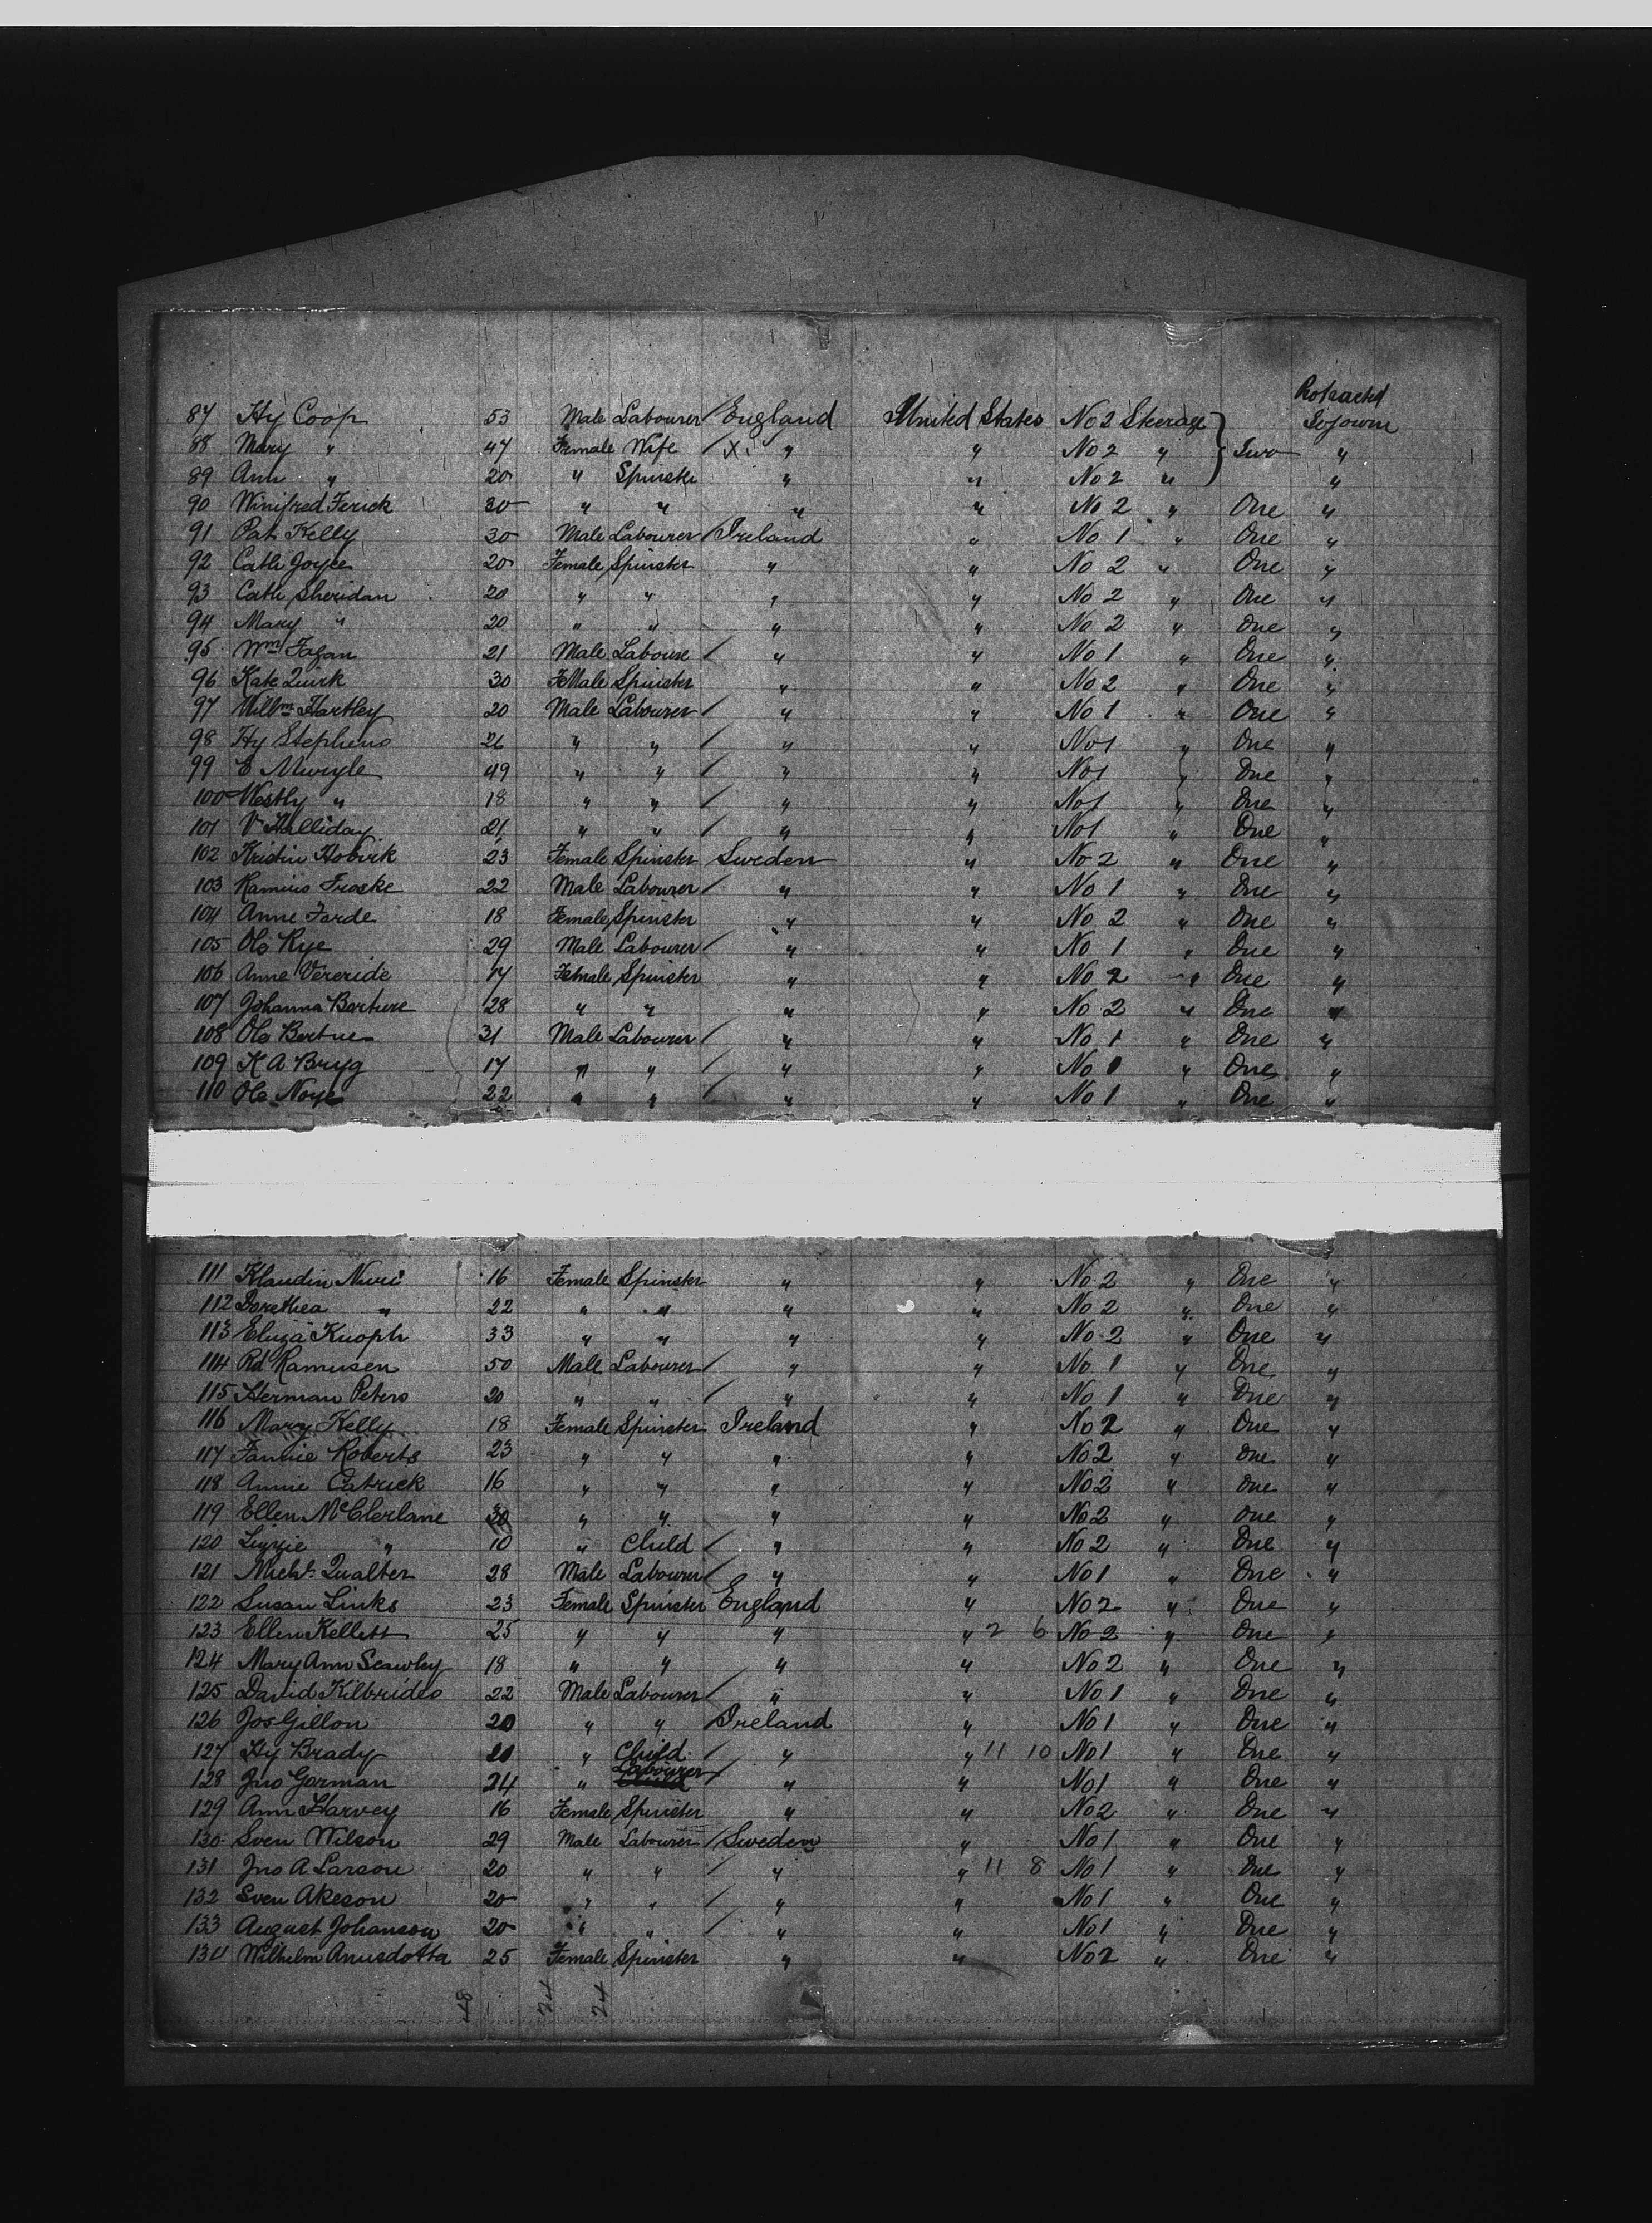 Protracted
87 Hy Coop 53 Male Labourer / England United States No 2 Steerage } Sojourn
88 Mary " 47 Female Wife / X " " No 2 " Two "
89 Ann " 20 " Spinster " " No 2 " "
90 Winifred Ferick 30 " " " " No 2 " One "
91 Pat Kelly 30 Male Labourer / Ireland " No 1 " One "
92 Cath Joyce 20 Female Spinster " " No 2 " One "
93 Cath Sheridan 20 " " " " No 2 " One "
94 Mary " 20 " " " " No 2 " One "
95 Wm Fagan 21 Male Laboure / " " No 1 " One "
96 Kate Quirk 30 Female Spinster " " No 2 " One "
97 Willm Hartley 20 Male Labourer / " " No 1 " One "
98 Hy Stephens 26 " " / " " No 1 " One "
99 E 49 " " / " " No 1 " One "
100 Westly " 18 " " / " " No 1 " One "
101 V Halliday 21 " " / " " No 1 " One "
102 Kristin Hobvik 23 Female Spinster Sweden " No 2 " One "
103 Ramius Froske 22 Male Labourer / " " No 1 " One "
104 Anne Farde 18 Female Spinster " " No 2 " One "
105 Ole Rye 29 Male Labourer / " " No 1 " One "
106 Anne Vereride 17 Female Spinster " " No 2 " One "
107 Johanna Barture 28 " " " " No 2 " One "
108 Ole Bertue 31 Male Labourer / " " No 1 " One "
109 K A Bryg 17 " " / " " No 1 " One "
110 Ole Noye 22 " " / " " No 1 " One "
111 Klaudin Nuri 16 Female Spinster " " No 2 " One "
112 Dorethea " 22 " " " " No 2 " One "
113 Eliza Knoph 33 " " " " No 2 " One "
114 Rd Ramusen 50 Male Labourer / " " No 1 " One "
115 Herman Peters 20 " " / " " No 1 " One "
116 Mary Kelly 18 Female Spinster Ireland " No 2 " One "
117 Fannie Roberts 23 " " " " No 2 " One "
118 Annie Catrick 16 " " " " No 2 " One "
119 Ellen McClerlane 30 " " " " No 2 " One "
120 Lizzie " 10 " Child / " " No 2 " One "
121 Michl Qualter 28 Male Labourer / " " No 1 " One "
122 Susan Links 23 Female Spinster England " No 2 " One "
123 Ellen Kellett 25 " " " " 2 6 No 2 " One "
124 Mary Ann Scawley 18 " " " " No 2 " One "
125 David Kilbrides 22 Male Labourer / " " No 1 " One "
126 Jos Gillon 20 " " / Ireland " No 1 " One "
127 Hy Brady " Child / " " 11 10 No 1 " One "
128 Jno Gorman 24 " Labourer / " " No 1 " One "
129 Ann Harvey 16 Female Spinster " " No 2 " One "
130 Sven Wilson 29 Male Labourer / Sweden " No 1 " One "
131 Jno A Larson 20 " " / " " 11 8 No 1 " One "
132 Sven Akeson 20 " " / " " No 1 " One "
133 August Johanson 20 " " / " " No 1 " One "
134 Wilhelm Anusdotta 25 Female Spinster " " No 2 " One "
48 24 24